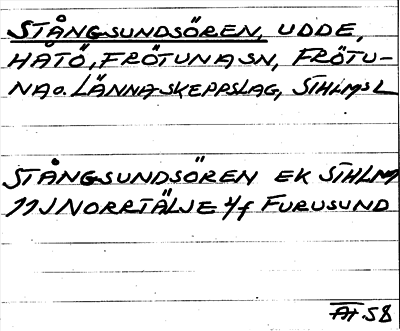 STÅNGSUNDSÖREN, UDDE,
HÅTÖ, FRÖTUNA SN, FRÖTU-
NA o. LÄNNA SKEPPSLAG, STHLMS L
STÅNGSUNDSÖREN EK STHLM
11J NORRTÄLJE 4/f FURUSUND
58